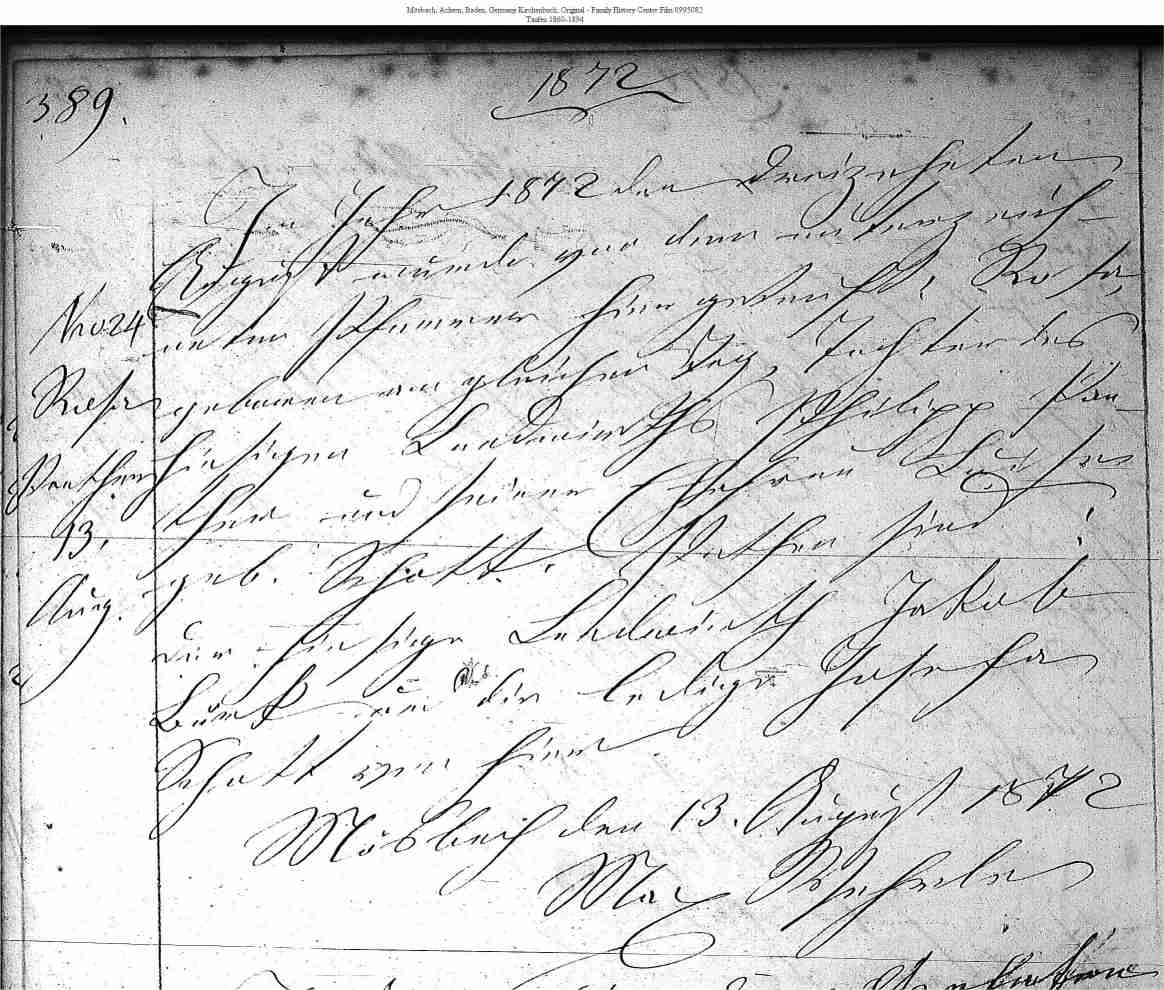 Mösbach, Achern, Baden, Germany Kirchenbuch, Original - Family History Center Film 0995082
Taufen 1860-1894
389.
1872
Im Jahr 1872 den dreizehnten
August wurde von dem unterzeich-
neten Pfarrer hier getauft: Rosa,
geboren am gleichen Tag, Tochter des
hiesigen Landwirths Philipp Pan-
ther und seiner Ehefrau Luise
geb. Schott. Pathen sind:
der hiesige Landwirth Jakob
und die ledige Josefa
Schott von hier
Mösbach den 13. August 1872
Max
Nro 24
Rosa
Panther
13.
Aug.